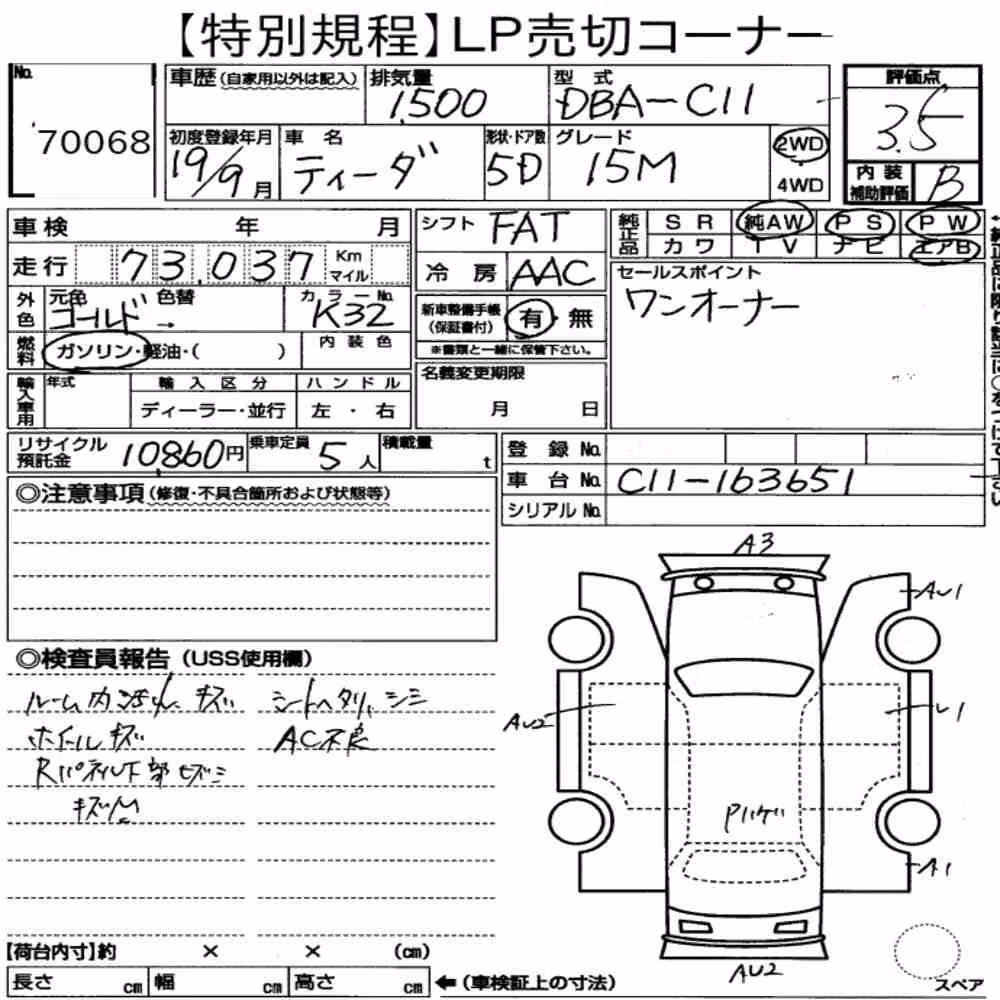 【特別規程】LP売切コーナー
No.
70068
車歴(自家用以外は記入)
排気量
1,500
型式
DBA-C11
評価点
3.5
初度登録年月
19/9月
車名
ティーダ
形状・ドア数
5D
グレード
15M
2WD
4WD
内装
補助評価
B
車検 年 月
シフト
FAT
純正品
SR 純AW PS PW
カワ TV ナビ エアB
走行 73,037 Km マイル
冷房
AAC
セールスポイント
ワンオーナー
外色
元色 色替
ゴールド →
カラーNo.
K32
新車整備手帳
(保証書付)
有・無
※書類と一緒に保管下さい。
燃料
ガソリン・軽油・( )
内装色
名義変更期限
月 日
輸入車用
年式
輸入区分
ハンドル
ディーラー・並行
左・右
リサイクル
預託金
10,860円
乗車定員
5人
積載量
t
登録No.
車台No.
C11-163651
シリアルNo.
◎注意事項(修復・不具合箇所および状態等)
◎検査員報告(USS使用欄)
キズ
シートヘタリ、シミ
ホイールキズ
AC不良
A3
AU1
AU2
U1
A1
AU2
スペア
【荷台内寸】約 × × (cm)
長さ cm 幅 cm 高さ cm
←(車検証上の寸法)